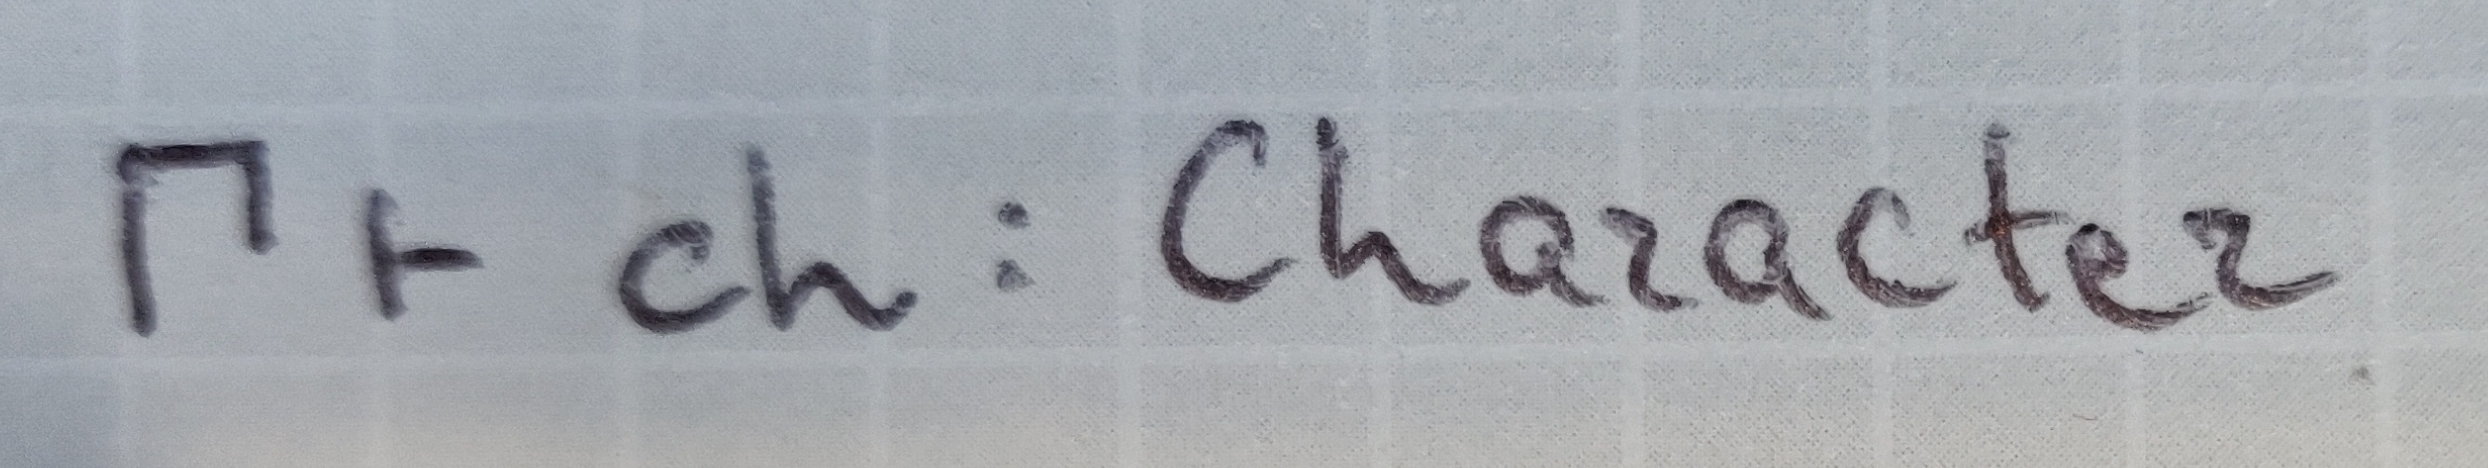 Γ ⊢ ch : Character